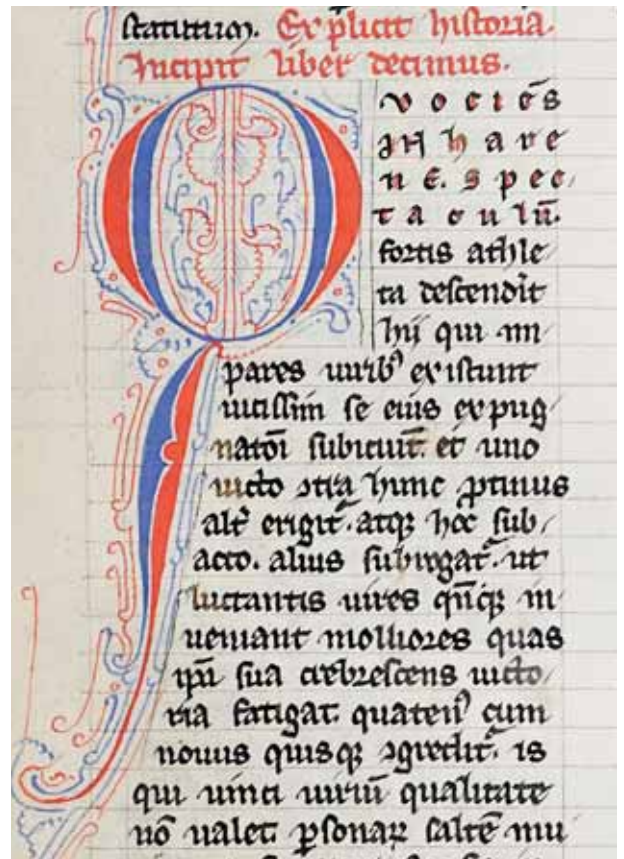 statutum. Explicit historia.
Incipit liber decimus.
Q uociēs
in hare
ne. spec
taculū.
fortis athle
ta descendit
hij qui im
pares uirib⁹ existunt
uicissim se eius expug
natōi subiciūt. et uno
uicto ɔtra hunc ꝓtinus
alt̓ erigit᷑. atqꝫ hoc sub
acto. alius subrogat᷑. ut
luctantis uires qn̄qꝫ in
ueniant molliores quas
ip̄a sua crebrescens uicto
ria fatigat. quaten⁹ cum
nouus quisqꝫ ɔgredit᷑. is
qui uinci uiriū qualitate
nō ualet. ꝑsonaꝝ saltē mu